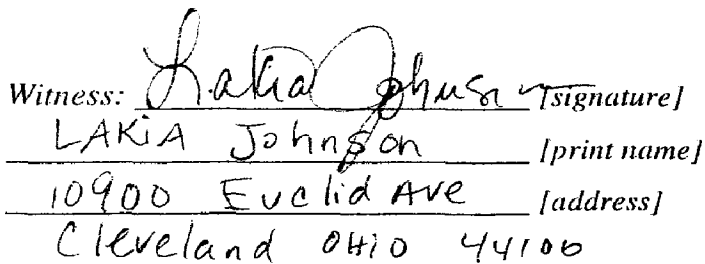 Witness: Lakia Johnson [signature]
LAKiA Johnson [print name]
10900 Euclid Ave [address]
Cleveland OHiO 44106